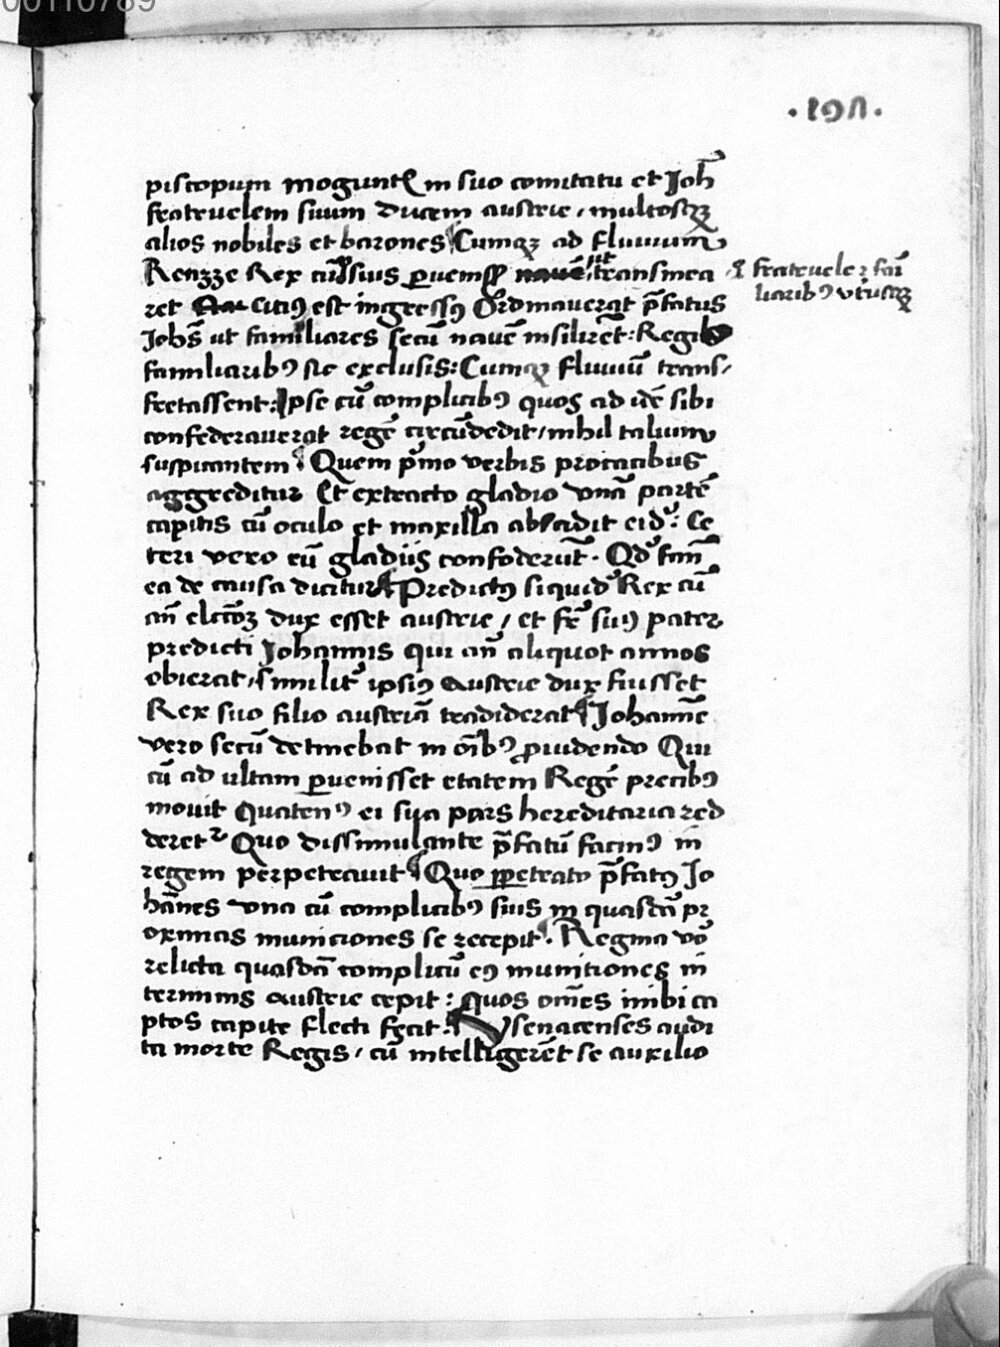 00110789
·191·
piscopum mogunt̄ in suo comitatu et Joh̄
fratruelem suum ducem austrie / multosqꝫ
alios nobiles et barones Cumqꝫ ad fluuium
Renzze Rex cū suis ꝑuenissꝫ ut transmea
ret Citiꝰ est ingressꝰ Ordinauerat p̄fatus
Johēs ut familiares secū nauē insilirēt: Regis
familiaribꝰ sic exclusis: Cumqꝫ fluuiū trans/
fretassent: Ipse cū complicibꝰ quos ad idē sibi
confederauerat regē circūdedit / nihil talium
suspicantem Quem p̄mo verbis procacibus
aggreditur Et extracto gladio vnā partē
capitis cū oculo et maxilla abscidit eidē: Ce
teri vero eū gladijs confoderūt. Qd̄ tam̄
ea de causa dicitur Predictꝰ siquidē Rex cū
an̄ elcc̄oꝫ dux esset austrie / et fr̄ suꝰ pater
predicti Johannis qui an̄ aliquot annos
obierat / similit̄ ipsiꝰ Austrie dux fuisset
Rex suo filio austriā tradiderat Johannē
vero secū detinebat in oīb̄ꝰ ꝓuidendo Qui
cū ad vltam ꝑuenisset etatem Regē precibꝰ
mouit Quatenꝰ ei sua pars hereditaria red
deretʳ Quo dissimulante p̄fatū facinꝰ in
regem perpetrauit Quo ꝑpetrato p̄fatꝰ Jo
hānes vna cū complicibꝰ suis in quasdā pr
oximas municiones se recepit. Regina vō
relicta quasdā complicū eꝰ munitiones in
terminis austrie cepit: quos om̄es inibi ca
ptos capite flecti fecit. ysenacenses audi
ta morte Regis / cū intelligerēt se auxilio
fratrueles fāi
liaribꝰ vtriusqꝫ